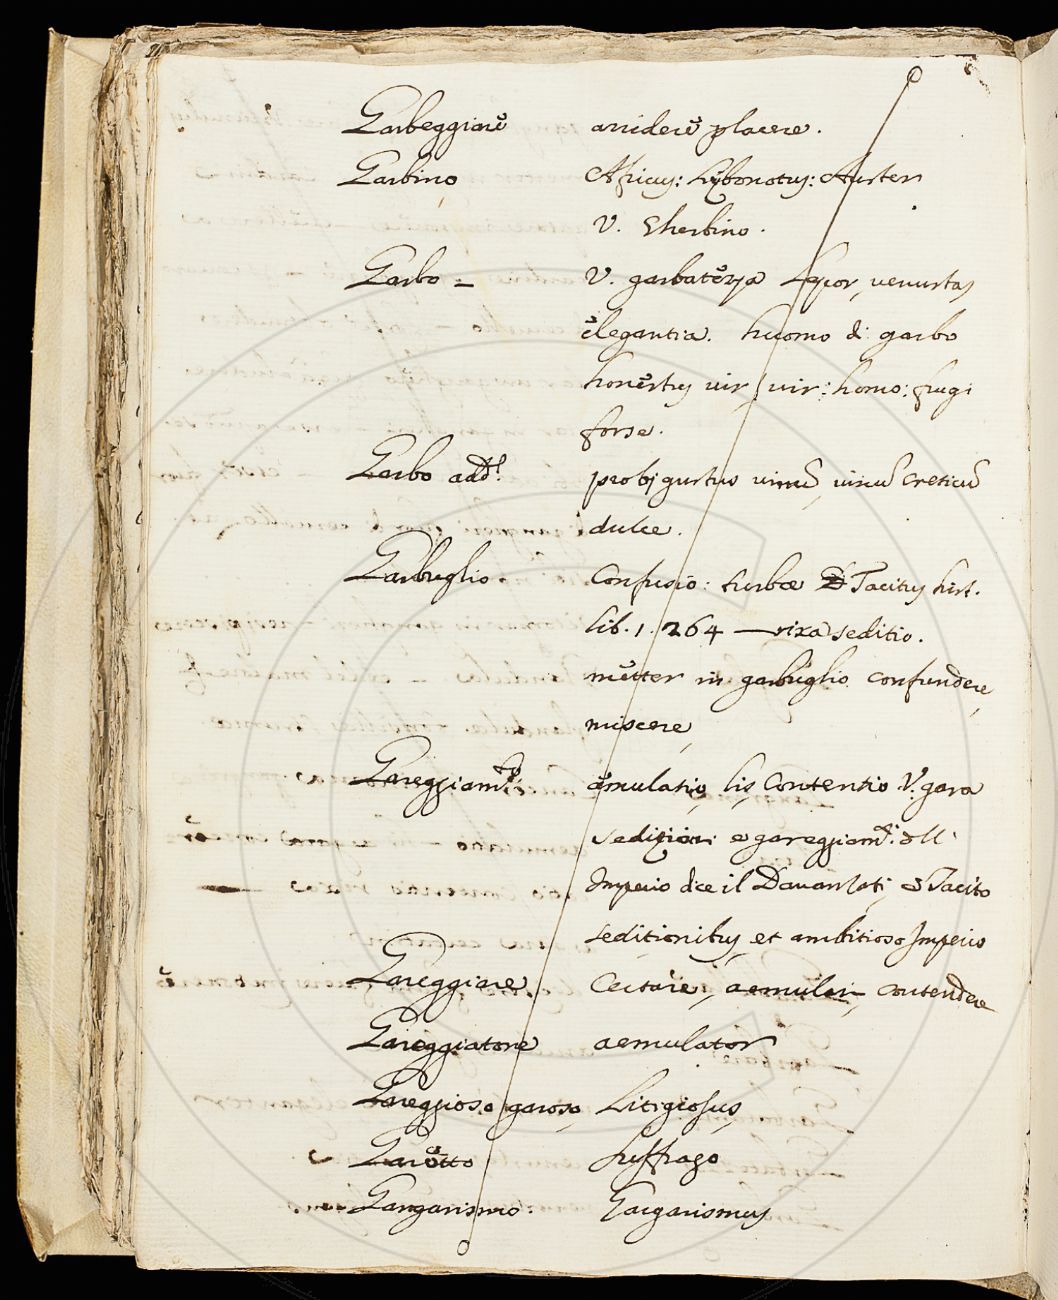 Garbeggiare arridere placere.
Garbino Africus: Lybonotus: Auster
V. Gherbino.
Garbo = V. garbatezza Lepor, venustas
elegantia. huomo di garbo
honestus vir, vir: homo: frugi
forse.
Garbo add. probi gustus vinũ, vinũ creticũ
dulce.
Garbuglio. Confusio: turbæ Tacitus hist.
lib. 1. 264 — rixa seditio.
metter in garbuglio confundere,
miscere,
Gareggiamto æmulatio, lis, contentio V. gara
sedizioni e gareggiamti dell'
Imperio dice il Davanzati, Tacito
seditionibus, et ambitioso Imperio
Gareggiare Certare, aemulari, contendere
Gareggiatore aemulator
Gareggioso, garoso, Litigiosus,
Garetto suffrago
Gargarismo. Gargarismus